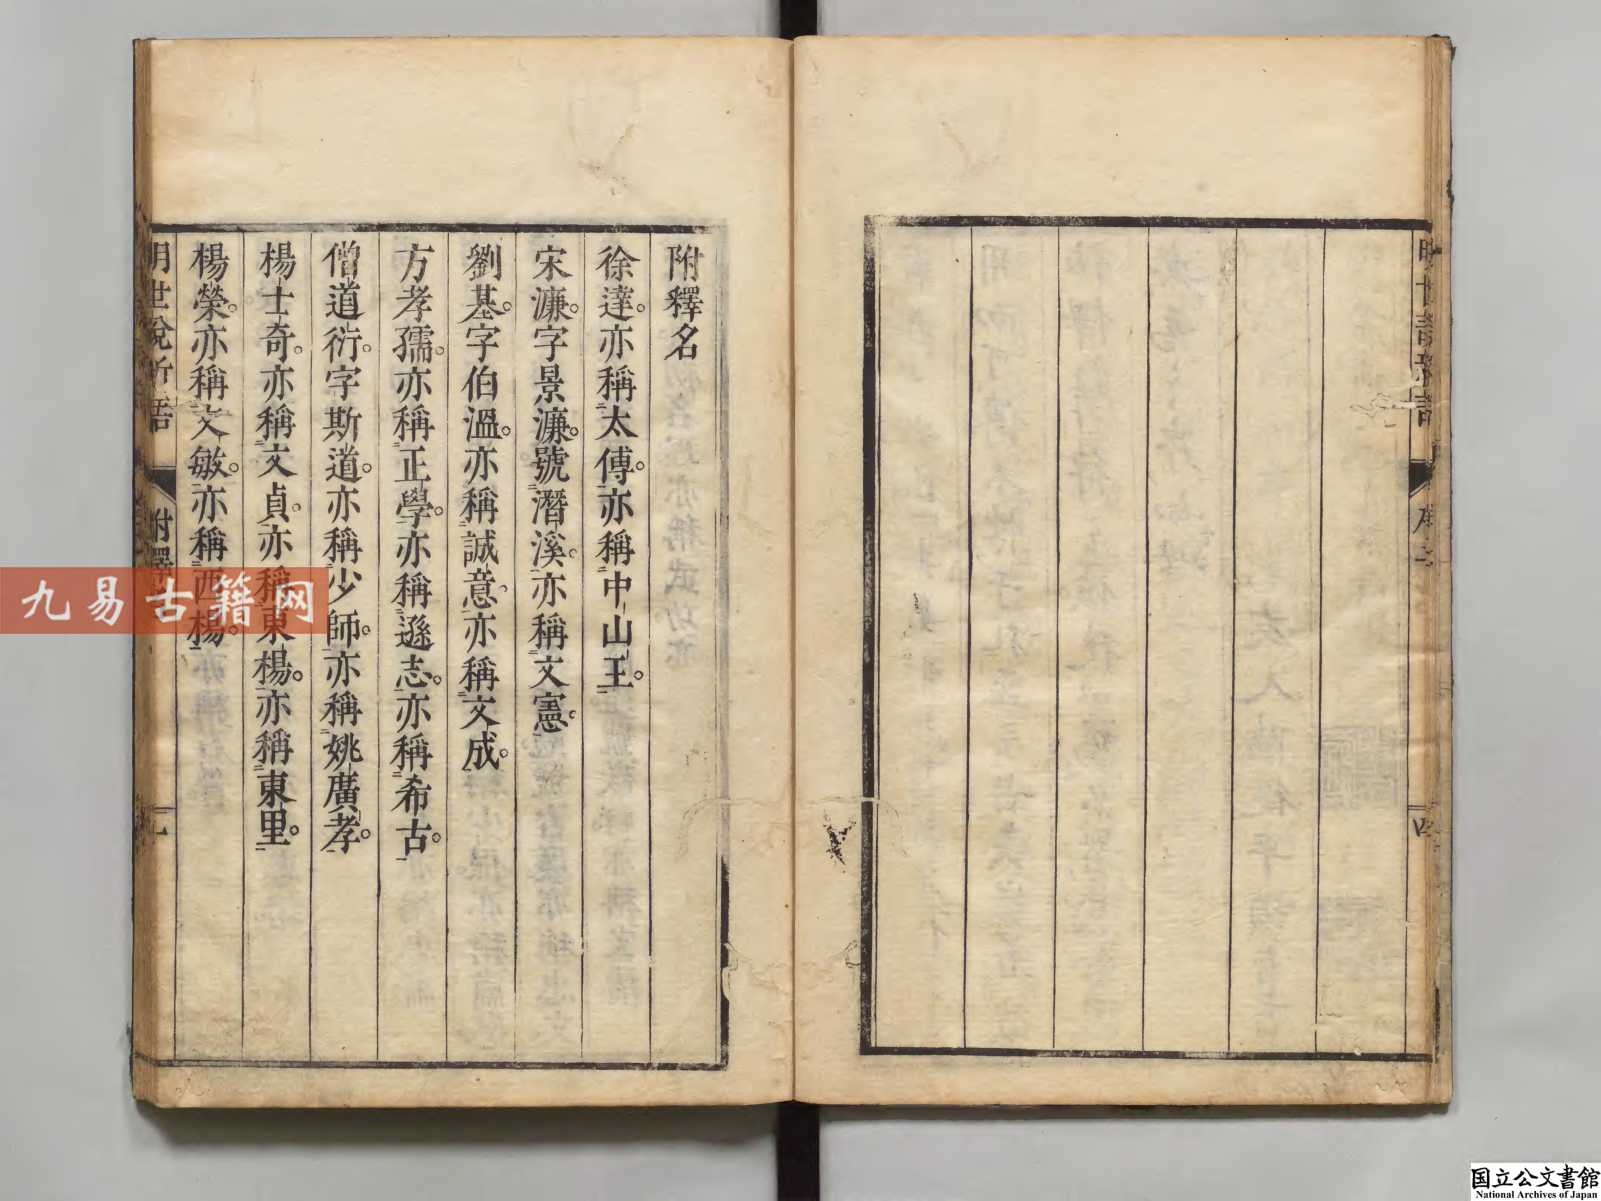 附釋名
徐達。亦稱太傅。亦稱中山王。
宋濂。字景濂。號潛溪。亦稱文憲。
劉基。字伯溫。亦稱誠意。亦稱文成。
方孝孺。亦稱正學。亦稱遜志。亦稱希古。
僧道衍。字斯道。亦稱少師。亦稱姚廣孝。
楊士奇。亦稱文貞。亦稱東楊。亦稱東里。
楊榮。亦稱文敏。亦稱西楊。
明世說新語 附釋 一
九易古籍网
国立公文書館
National Archives of Japan